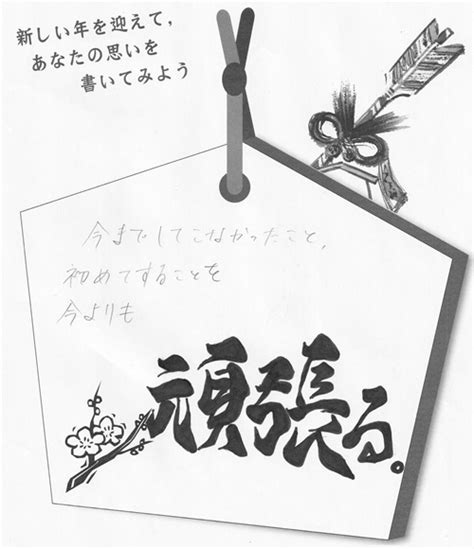 新しい年を迎えて，
あなたの思いを
書いてみよう
今までしてこなかったこと，
初めてすることを
今よりも
頑張る。